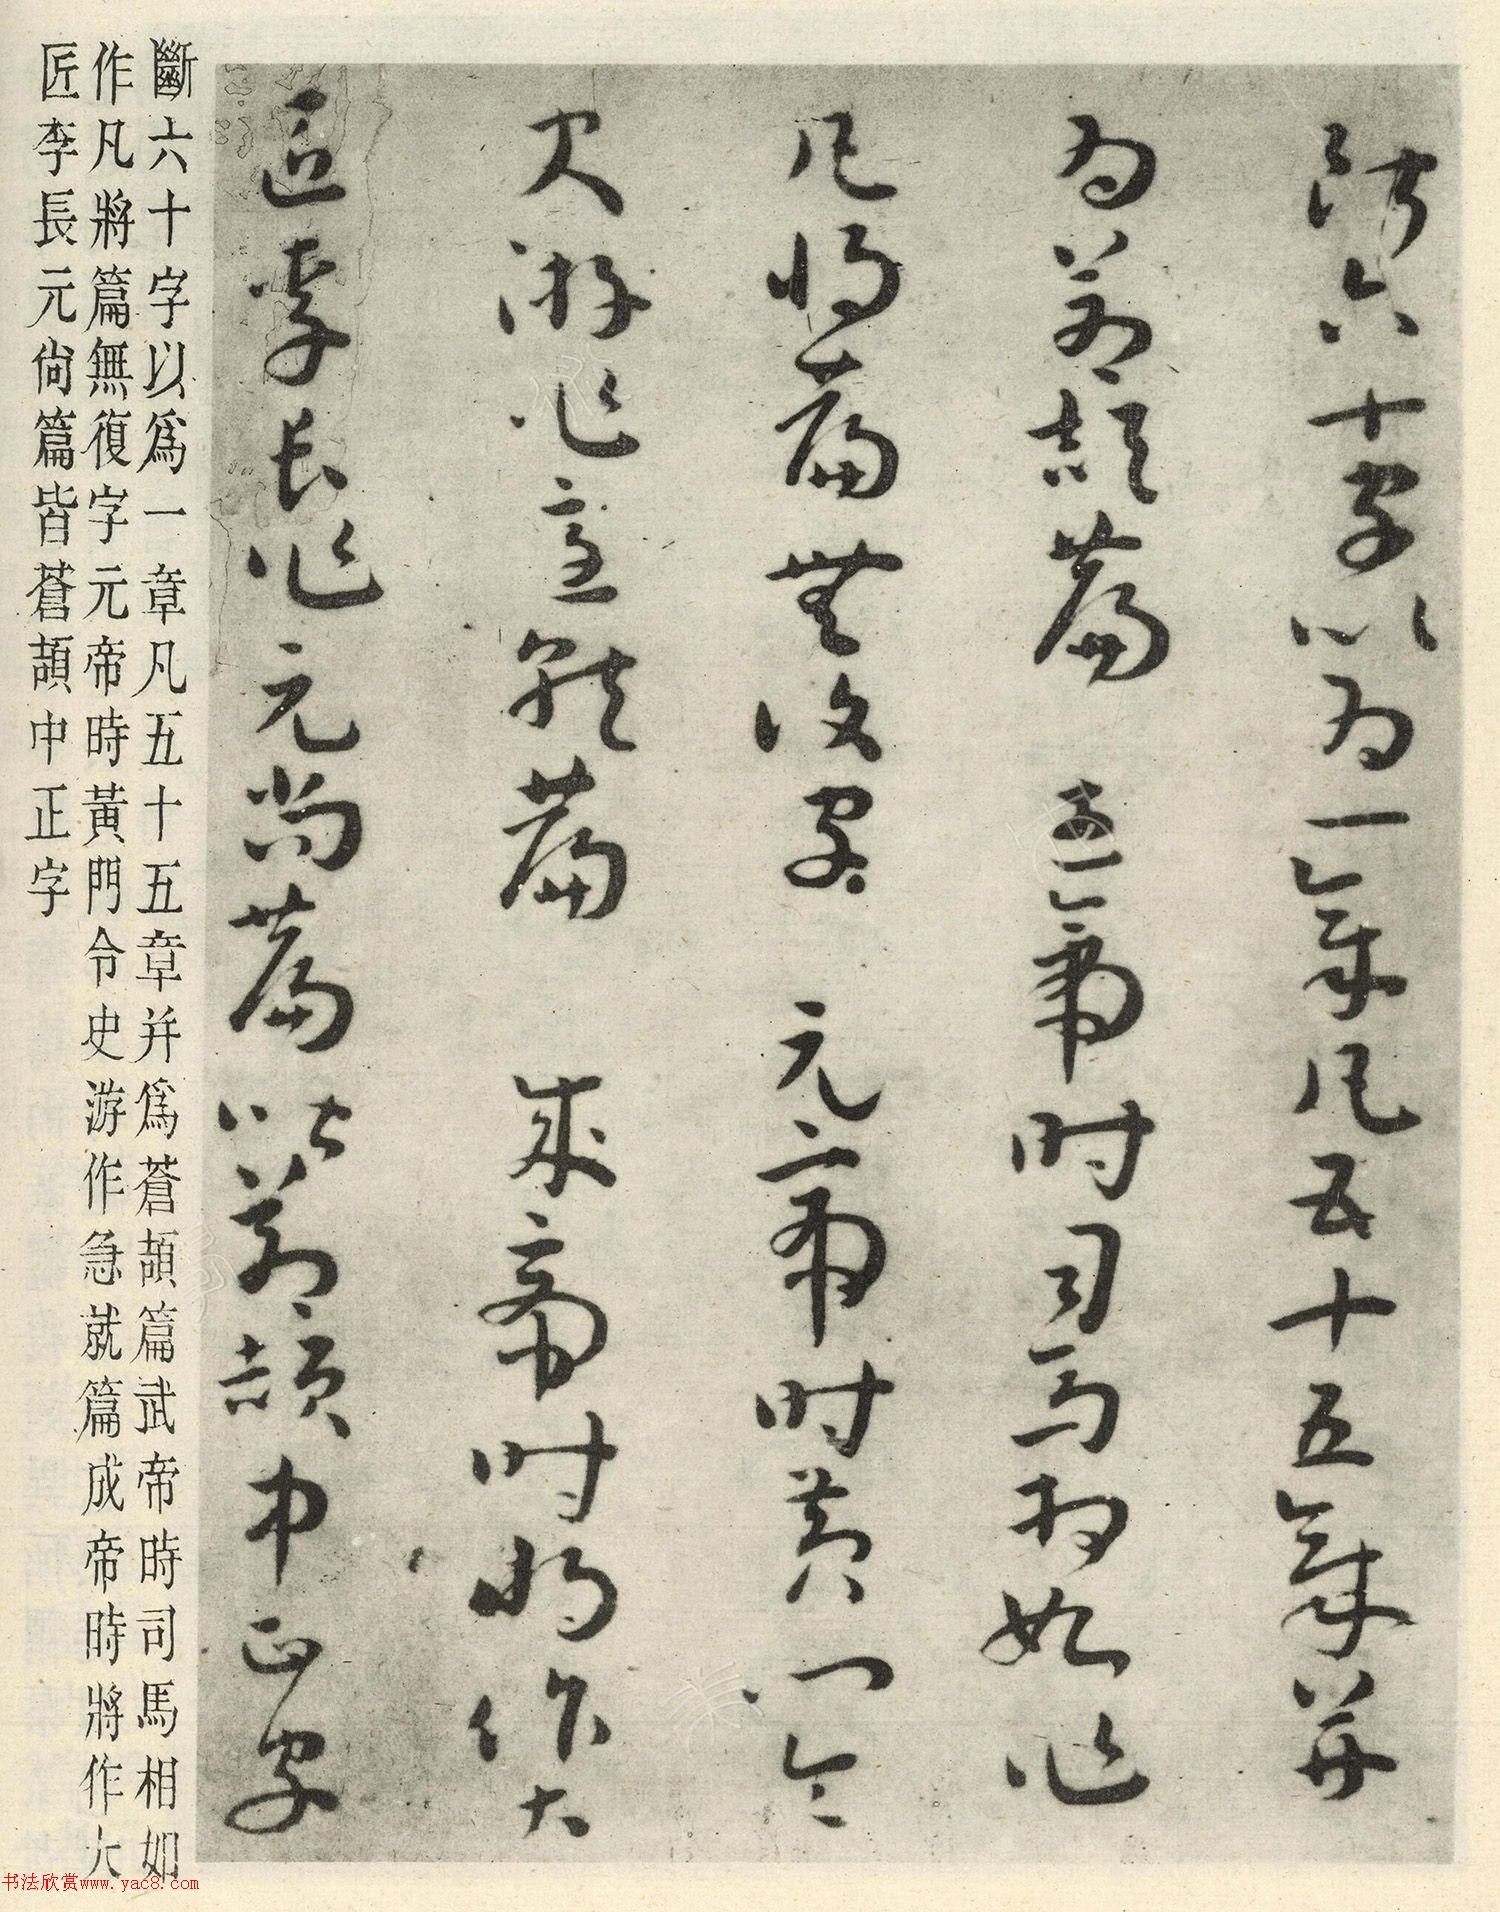 斷六十字以為一章凡五十五章并
為蒼頡篇武帝時司馬相如作
凡將篇無復字元帝時黃門令
史游作急就篇成帝時將作大
匠李長作元尚篇皆蒼頡中正字
斷六十字以爲一章凡五十五章并爲蒼頡篇武帝時司馬相如
作凡將篇無復字元帝時黃門令史游作急就篇成帝時將作大
匠李長元尙篇皆蒼頡中正字
书法欣赏www.yac8.com